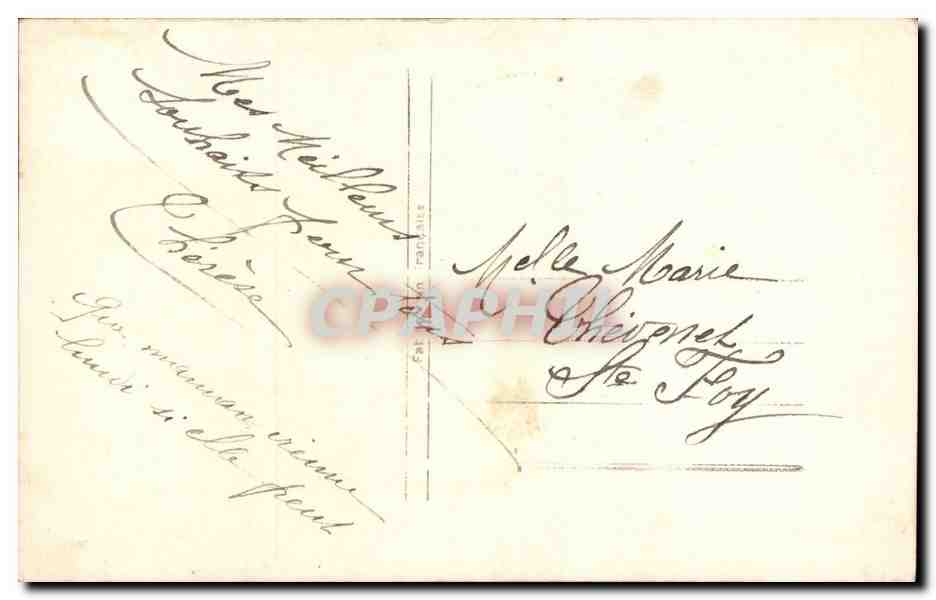 Mes Meilleurs
Souhaits pour vous
Thérèse
Que maman vienne
lundi si elle peut
Fabrication Française
Melle Marie
Thévenet
Ste Foy
CPAPHIL